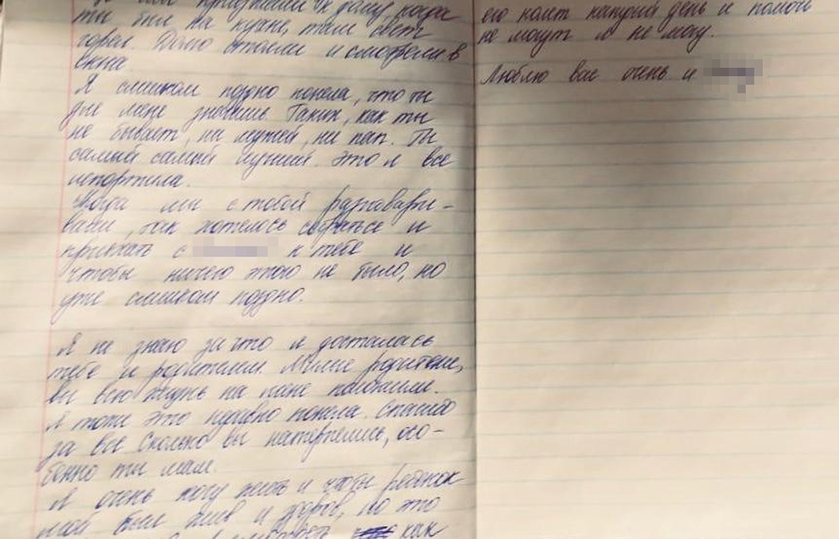 приезжали к дому, когда
ты был на кухне, там свет
горел. Долго стояли и смотрели в
окна.
Я слишком поздно поняла, что ты
для меня значишь. Таких, как ты
не бывает, ни мужей, ни пап. Ты
самый самый лучший. Это я все
испортила.
Когда мы с тобой разговари-
вали, так хотелось собраться и
приехать с к тебе и
чтобы ничего этого не было, но
уже слишком поздно.
Я не знаю за что я досталась
тебе и родителям. Милые родители,
вы всю жизнь на меня положили.
Я тоже это недавно поняла. Спасибо
за все. Сколько вы натерпелись, осо-
бенно ты мам.
Я очень хочу жить и чтобы ребенок
мой был жив и здоров, но это
как
его колят каждый день и помочь
не могут и я не могу.
Люблю вас очень и